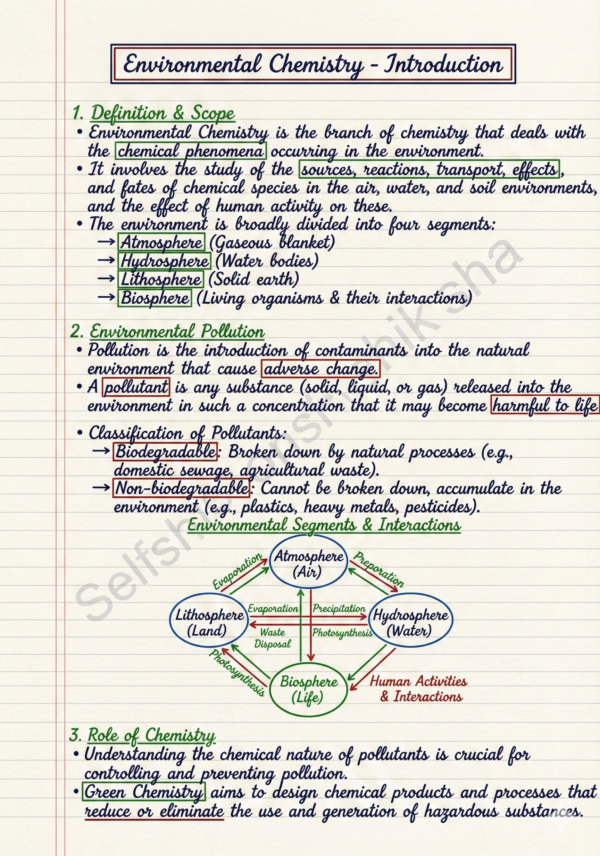 Environmental Chemistry - Introduction
1. Definition & Scope
• Environmental Chemistry is the branch of chemistry that deals with
the chemical phenomena occurring in the environment.
• It involves the study of the sources, reactions, transport, effects,
and fates of chemical species in the air, water, and soil environments,
and the effect of human activity on these.
• The environment is broadly divided into four segments:
→ Atmosphere (Gaseous blanket)
→ Hydrosphere (Water bodies)
→ Lithosphere (Solid earth)
→ Biosphere (Living organisms & their interactions)
2. Environmental Pollution
• Pollution is the introduction of contaminants into the natural
environment that cause adverse change.
• A pollutant is any substance (solid, liquid, or gas) released into the
environment in such a concentration that it may become harmful to life
• Classification of Pollutants:
→ Biodegradable: Broken down by natural processes (e.g.,
domestic sewage, agricultural waste).
→ Non-biodegradable: Cannot be broken down, accumulate in the
environment (e.g., plastics, heavy metals, pesticides).
Environmental Segments & Interactions
Atmosphere
(Air)
Evaporation
Preporation
Lithosphere
(Land)
Evaporation
Precipitation
Waste
Disposal
Photosynthesis
Hydrosphere
(Water)
Photosynthesis
Biosphere
(Life)
Human Activities
& Interactions
3. Role of Chemistry
• Understanding the chemical nature of pollutants is crucial for
controlling and preventing pollution.
• Green Chemistry aims to design chemical products and processes that
reduce or eliminate the use and generation of hazardous substances.